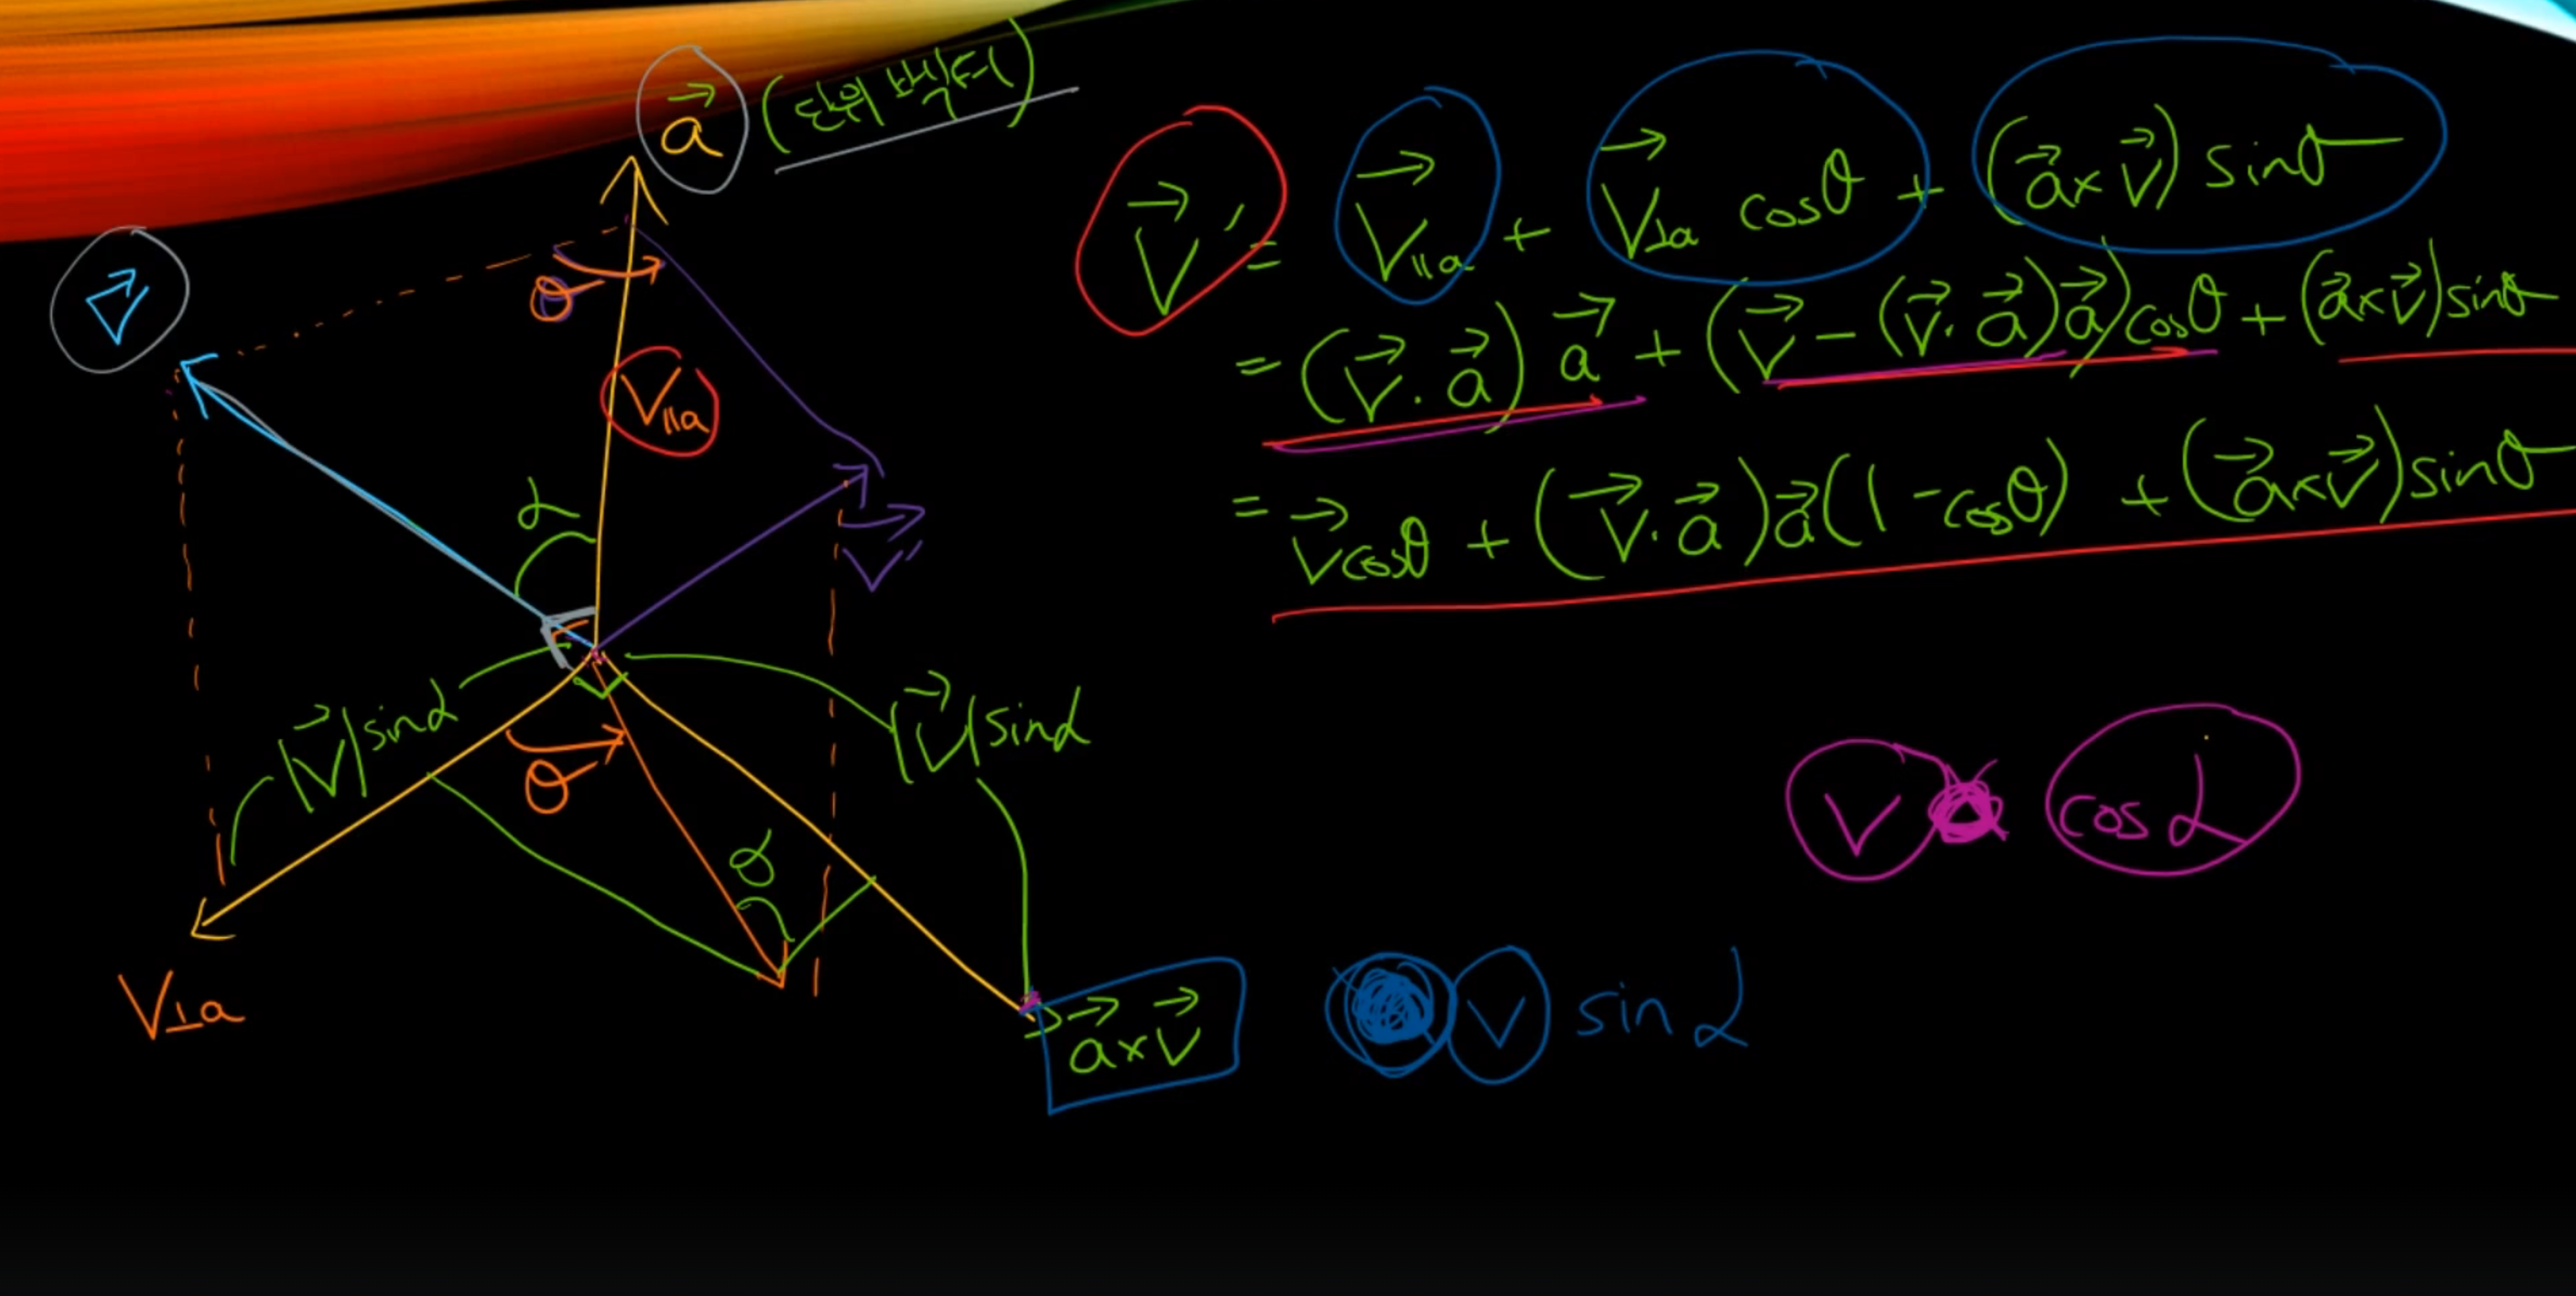 a⃗ (단위 벡터)
v⃗
θ
V∥a
α
v⃗'
|v⃗| sinα
|v⃗| sinα
θ
α
V⊥a
a⃗×v⃗
v⃗' = v⃗∥a + v⃗⊥a cosθ + (a⃗×v⃗) sinθ
= (v⃗·a⃗) a⃗ + (v⃗ - (v⃗·a⃗)a⃗) cosθ + (a⃗×v⃗) sinθ
= v⃗cosθ + (v⃗·a⃗)a⃗(1-cosθ) + (a⃗×v⃗) sinθ
V cosα
V sinα